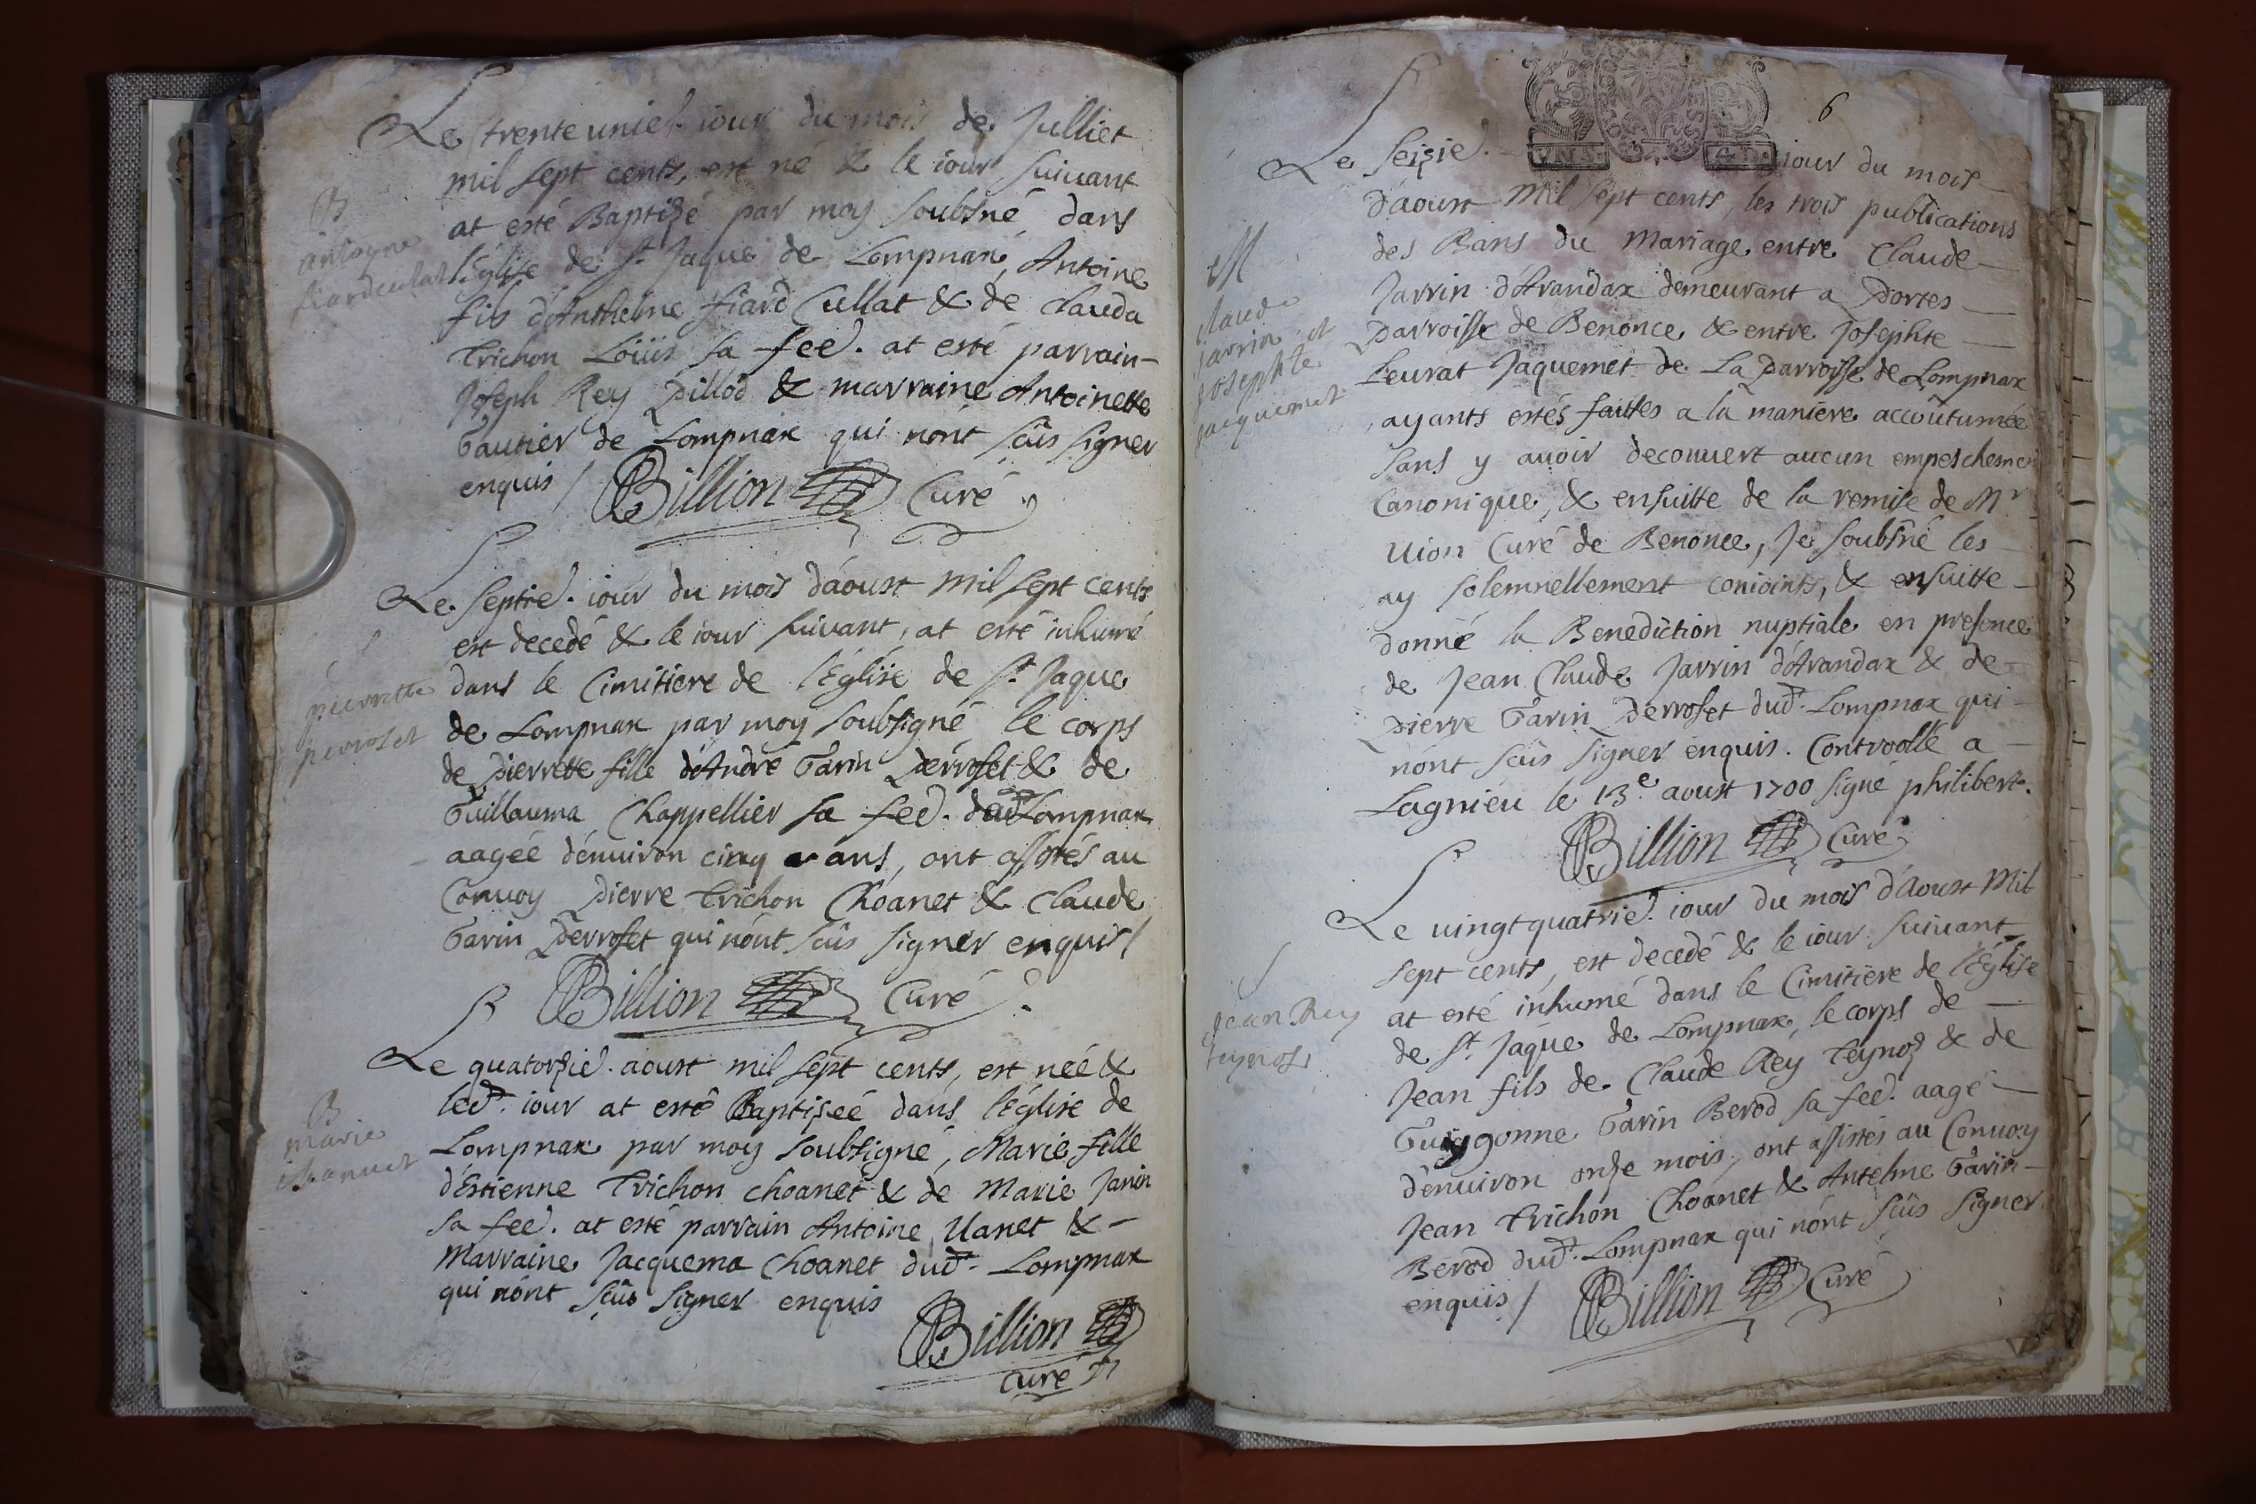 Le trente unie. iour du mois de Julliet
mil sept cents, est né & le iour suivant
at esté Baptizé par moy soubsné dans
B
antoyne
fiardcullat
l'église de St. Jaque de Lompnax, Antoine
fils d'Anthelme fiard Cullat & de Clauda
Trichon Loüis sa fee. at esté parrain
Joseph Rey Pillod & marraine Antoinette
Gautier de Lompnax qui n'ont sçus signer
enquis / Billion Curé
Le septie. iour du mois d'aoust mil sept cents
est decedé & le iour suivant, at esté inhumé
dans le Cimitiere de l'Église de St. Jaque
pierrette
perroset
de Lompnax par moy soubsigné le corps
de Pierrette fille d'André Garin Perroset & de
Guillauma Chappellier sa fee. dud Lompnax
aagée d'enuiron cinq ans, ont assistés au
Conuoy Pierre Trichon Choanet & Claude
Garin Perroset qui n'ont sçus signer enquis /
Billion Curé
Le quatorzie. aoust mil sept cents, est née &
led. iour at esté Baptizeé dans l'église de
B
marie
choanet
Lompnax par moy soubsigné, Marie fille
d'Estienne Trichon choanet & de Marie Janin
sa fee. at esté parrain Antoine Uanet &
Marraine Jacquema Choanet dud. Lompnax
qui n'ont sçus signer enquis
Billion
Curé
6
Le seizie. iour du mois
d'aoust Mil sept cents, les trois publications
des Bans du Mariage entre Claude
M
claude
jarrin et
josephte
jacquemet
Jarrin d'Arandax demeurant a Portes
Parroisse de Benonce & entre Josephte
Leurat Jaquemet de La Parroisse de Lompnax
ayants estés faittes a la maniere accoûtumée
sans y auoir decouuert aucun empeschemen
Canonique, & ensuitte de la remise de Mr
Uion Curé de Benonce, Je soubsné les
ay solemnellement conioints, & ensuitte
donné la Benediction nuptiale en presence
de Jean Claude Jarrin d'Arandax & de
Pierre Garin Perroset dud. Lompnax qui
n'ont sçus signer enquis. Controollé a
Lagnieu le 13e. aoust 1700 signé philibert.
Billion Curé
Le uingtquatrie. iour du mois d'Aoust Mil
sept cents, est decedé & le iour suiuant
at esté inhumé dans le Cimitiere de l'Église
Jean Rey
teynos
de St. Jaque de Lompnax, le corps de
Jean fils de Claude Rey Teynoz & de
Guigonne Garin Berod sa fee. aagé
d'enuiron onze mois, ont assistés au Conuoy
Jean Trichon Choanet & Antelme Garin
Berod dud. Lompnax qui n'ont sçus signer
enquis / Billion Curé